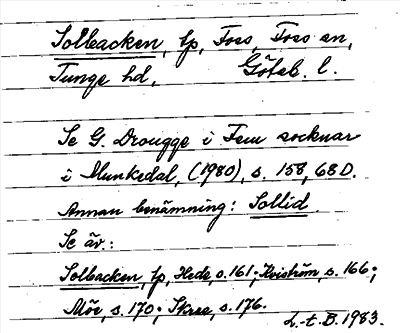 Solbacken, tp, Foss, Foss sn,
Tunge hd, Göteb. l.
Se G. Drougge i Fem socknar
i Munkedal, (1980), s. 158, 68D.
Annan benämning: Sollid.
Se äv.:
Solbacken, tp, Hede, s. 161; Kviström, s. 166;
Möe, s. 170; s. 176.
L.-t. B. 1983.